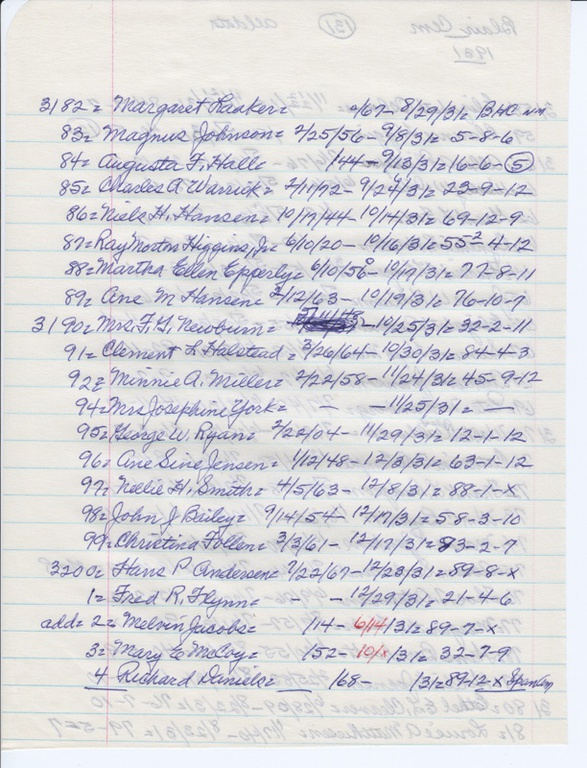 3182= Margaret Raaker= /67- 8/29/31= BHC
83= Magnus Johnson= 2/25/56- 9/8/31= 5-8-6
84= Augusta F. Hall= /44- 9/13/31= 16-6- 5
85= Charles A Warrick= 2/11/72- 9/24/31= 23-9-12
86= Niels H. Hansen= 10/17/44- 10/14/31= 69-12-9
87= Ray Morton Higgins, Jr= 6/10/20- 10/16/31= 55-2-4-12
88= Martha Ellen Epperly= 6/10/56- 10/17/31= 77-8-11
89= Ane M Hansen= 2/12/63- 10/19/31= 76-10-7
3190= Mrs. F. G. Newburn= -10/25/31= 32-2-11
91= Clement L Halstead= 3/26/64- 10/30/31= 84-4-3
92= Minnie A. Miller= 2/22/58- 11/24/31= 45-9-12
94= Mrs Josephine York= - -11/25/31= -
95= George W. Ryan= 2/22/04- 11/29/31= 12-1-12
96= Ane Sine Jensen= 1/12/48- 12/3/31= 63-1-12
97= Nellie H. Smith= 4/5/63- 12/8/31= 88-1-x
98= John J Bailey= 9/14/54- 12/17/31= 58-3-10
99= Christina Follen= 3/3/61- 12/17/31= 83-2-7
3200= Hans P Andersen= 7/22/67- 12/23/31= 89-8-x
1= Fred R. Flynn= - 12/29/31= 21-4-6
add= 2= Melvin Jacobs= /14- 6/14/31= 89-7-x
3= Mary E McCoy= /52- 10/x/31= 32-7-9
4 Richard Daniels= /68- /31= 89-12-x